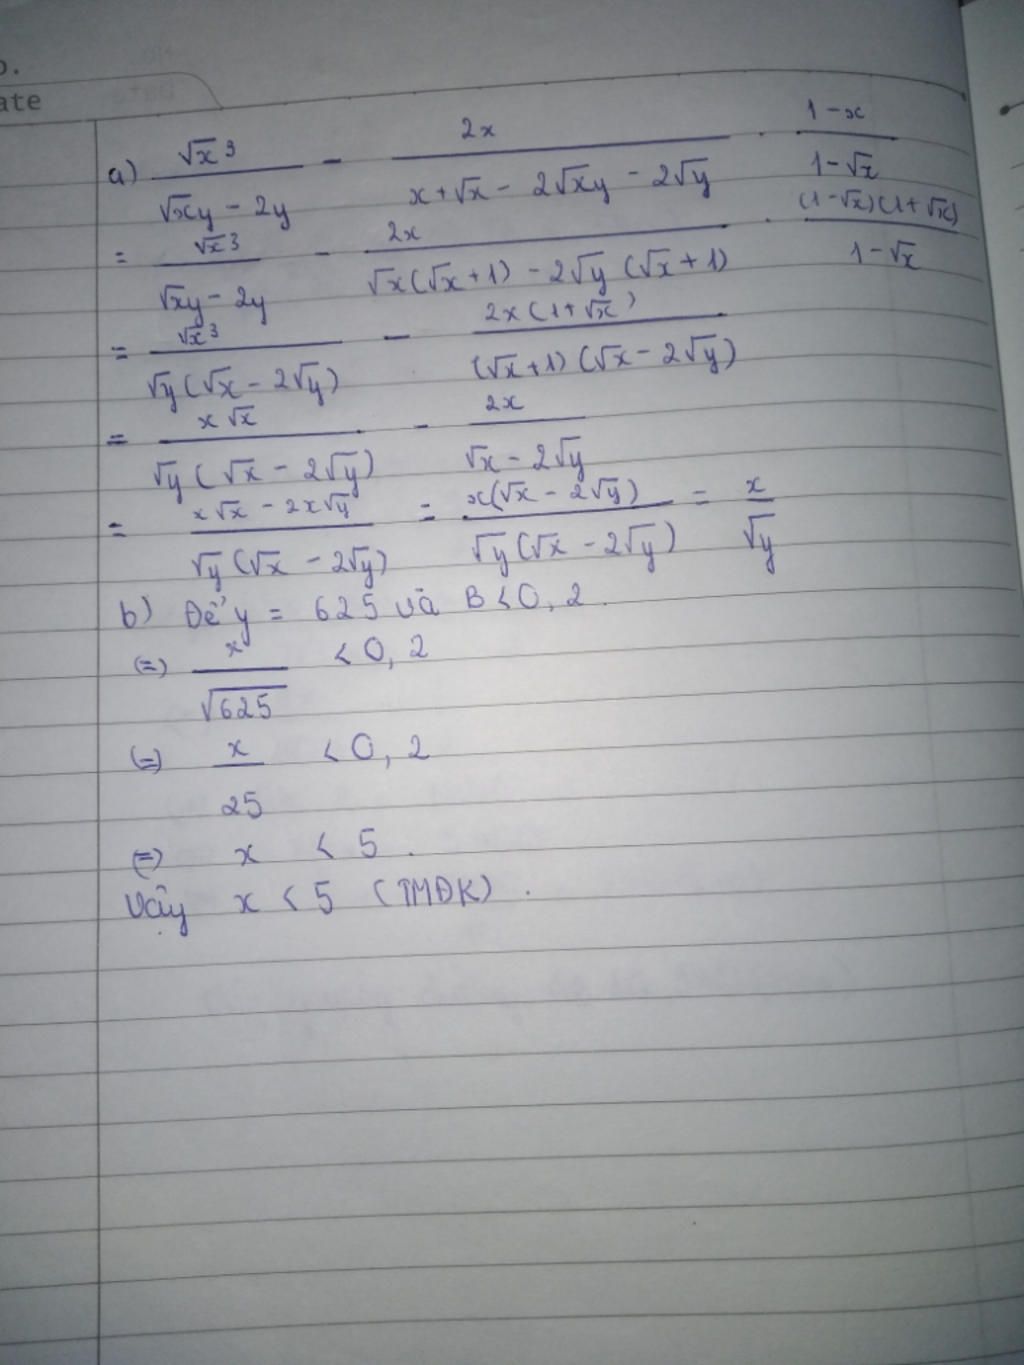 o.
ate
a) √x³ / (√xy - 2y) - 2x / (x + √x - 2√xy - 2√y) . (1 - x) / (1 - √x)
= √x³ / (√xy - 2y) - 2x / (√x(√x + 1) - 2√y (√x + 1)) . (1 - √x)(1 + √x) / (1 - √x)
= √x³ / (√y (√x - 2√y)) - 2x (1 + √x) / ((√x + 1) (√x - 2√y))
= x√x / (√y (√x - 2√y)) - 2x / (√x - 2√y)
= (x√x - 2x√y) / (√y (√x - 2√y)) = x(√x - 2√y) / (√y (√x - 2√y)) = x / √y
b) Để y = 625 và B < 0,2.
(=) x / √625 < 0,2
(=) x / 25 < 0,2
(=) x < 5.
Vậy x < 5 (TMĐK).